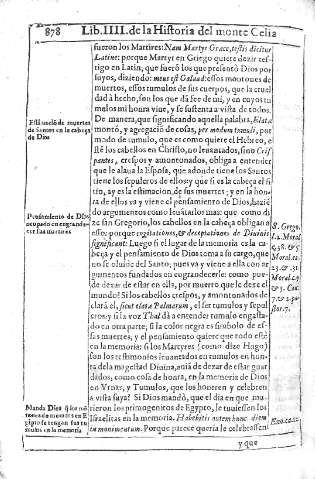 878 Lib. IIII. de la Historia del monte Celia
fueron los Martires: Nam Martyr Grace, testis dicitur
Latine: porque Martyr en Griego quiere dezir tes-
tigo en Latin, que fue lo que presentò Dios por
suyos, diziendo: meus est Galaad: essos montones de
muertos, essos tumulos de sus cuerpos, que la cruel
dad à hecho, son los que dã fee de mi, y en cuyos tu
mulos mi honra viue, y se sustenta a vista de todos.
De manera, que significando aquella palabra,
montò, y agregaciõ de cosas, per modum tumuli, por
modo de tumulo, que es como quiere el Hebreo, è
stè los cabellos en Christo, no leuantados, sino Cris
pantes, crespos y amontonados, obliga a entender
que le alaua la Esposa, que adonde tiene los Santos
tiene los sepulcros de ellos: y que si es la cabeça el si
tio, ay es la estimacion, de sus muertes; y en la hon
ra de ellos va y viene el pensamiento de Dios, hazié
do argumentos como leuātar los mas: que como di
ze san Gregorio, los cabellos en la cabeça obligan a
esso: porque cogitationes, & Diuinis
significant: Luego si el lugar de la memoria es la ca
beça y el pensamiento de Dios toma a su cargo, que
no se oluide del Santo, pues va y viene a ella con ar
gumentos fundados en engrandecerle: como pue-
de dexar de estar en ella, por muerto que le dexe el
mundo? Si los cabellos crespos, y amontonados de
clarã el, sicut elatæ Palmarum, el ser tumulos y sepul
cros; y si la voz Thal dà a entender tumulo engasta-
do en otra parte; si la color negra es simbolo de es-
sas muertes, y el pensamiento quiere que todo esté
en la memoria: si los Martyres (como dize Hugo)
son los testimonios leuantados en tumulos en hon-
ra de la magestad Diuina, auiã de dexar de estar guar
didos, como cosa de honra, en la memoria de Dios
en Vrnas, y Tumulos, que los honren y celebren
a vista suya? Si Dios mandò, que el dia en que mu-
rieron los primogenitos de Egypto, se tuuiessen los
Israelitas en la memoria. Habebitis autem hunc diem
in monimentum. Porque parecia le celebrassen
y que
Està mõtõ de muertes
de Santos en la cabeça
de Dios
Pensamiento de Dios
ocupado en engrande-
cer sus martires
Manda Dios q̃ los mõ
tones de muertos en E
gipto se tengan por tu
mulos en la memoria
S. Grego.
Moral
Moral.
Moral.
Exo.